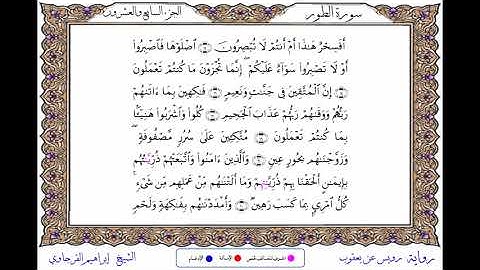 سورة الطور
الجزء السابع والعشرون
أَفَسِحْرٌ هَٰذَا أَمْ أَنتُمْ لَا تُبْصِرُونَ ۝ اصْلَوْهَا فَاصْبِرُوا
أَوْ لَا تَصْبِرُوا سَوَاءٌ عَلَيْكُمْ إِنَّمَا تُجْزَوْنَ مَا كُنتُمْ تَعْمَلُونَ
۝ إِنَّ الْمُتَّقِينَ فِي جَنَّٰتٍ وَنَعِيمٍ ۝ فَٰكِهِينَ بِمَا ءَاتَىٰهُمْ
رَبُّهُمْ وَوَقَىٰهُمْ رَبُّهُمْ عَذَابَ الْجَحِيمِ ۝ كُلُوا وَاشْرَبُوا هَنِيئًا
بِمَا كُنتُمْ تَعْمَلُونَ ۝ مُتَّكِـِٔينَ عَلَىٰ سُرُرٍ مَّصْفُوفَةٍ
وَزَوَّجْنَٰهُم بِحُورٍ عِينٍ ۝ وَالَّذِينَ ءَامَنُوا وَاتَّبَعَتْهُمْ ذُرِّيَّٰتُهُم
بِإِيمَٰنٍ أَلْحَقْنَا بِهِمْ ذُرِّيَّتَهُمْ وَمَا أَلَتْنَٰهُم مِّنْ عَمَلِهِم مِّن شَيْءٍ
كُلُّ امْرِئٍ بِمَا كَسَبَ رَهِينٌ ۝ وَأَمْدَدْنَٰهُم بِفَٰكِهَةٍ وَلَحْمٍ
رواية رويس عن يعقوب
الإمالة
الإدغام
الشيخ إبراهيم الفرجاوي